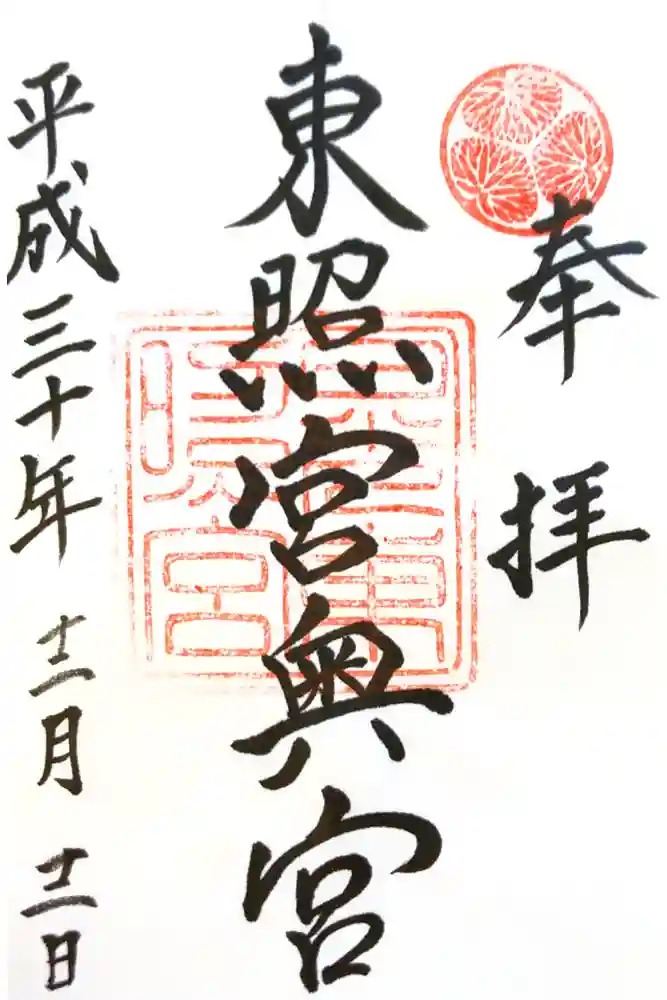 奉拝
東照宮奥宮
平成三十年 十二月 十二日